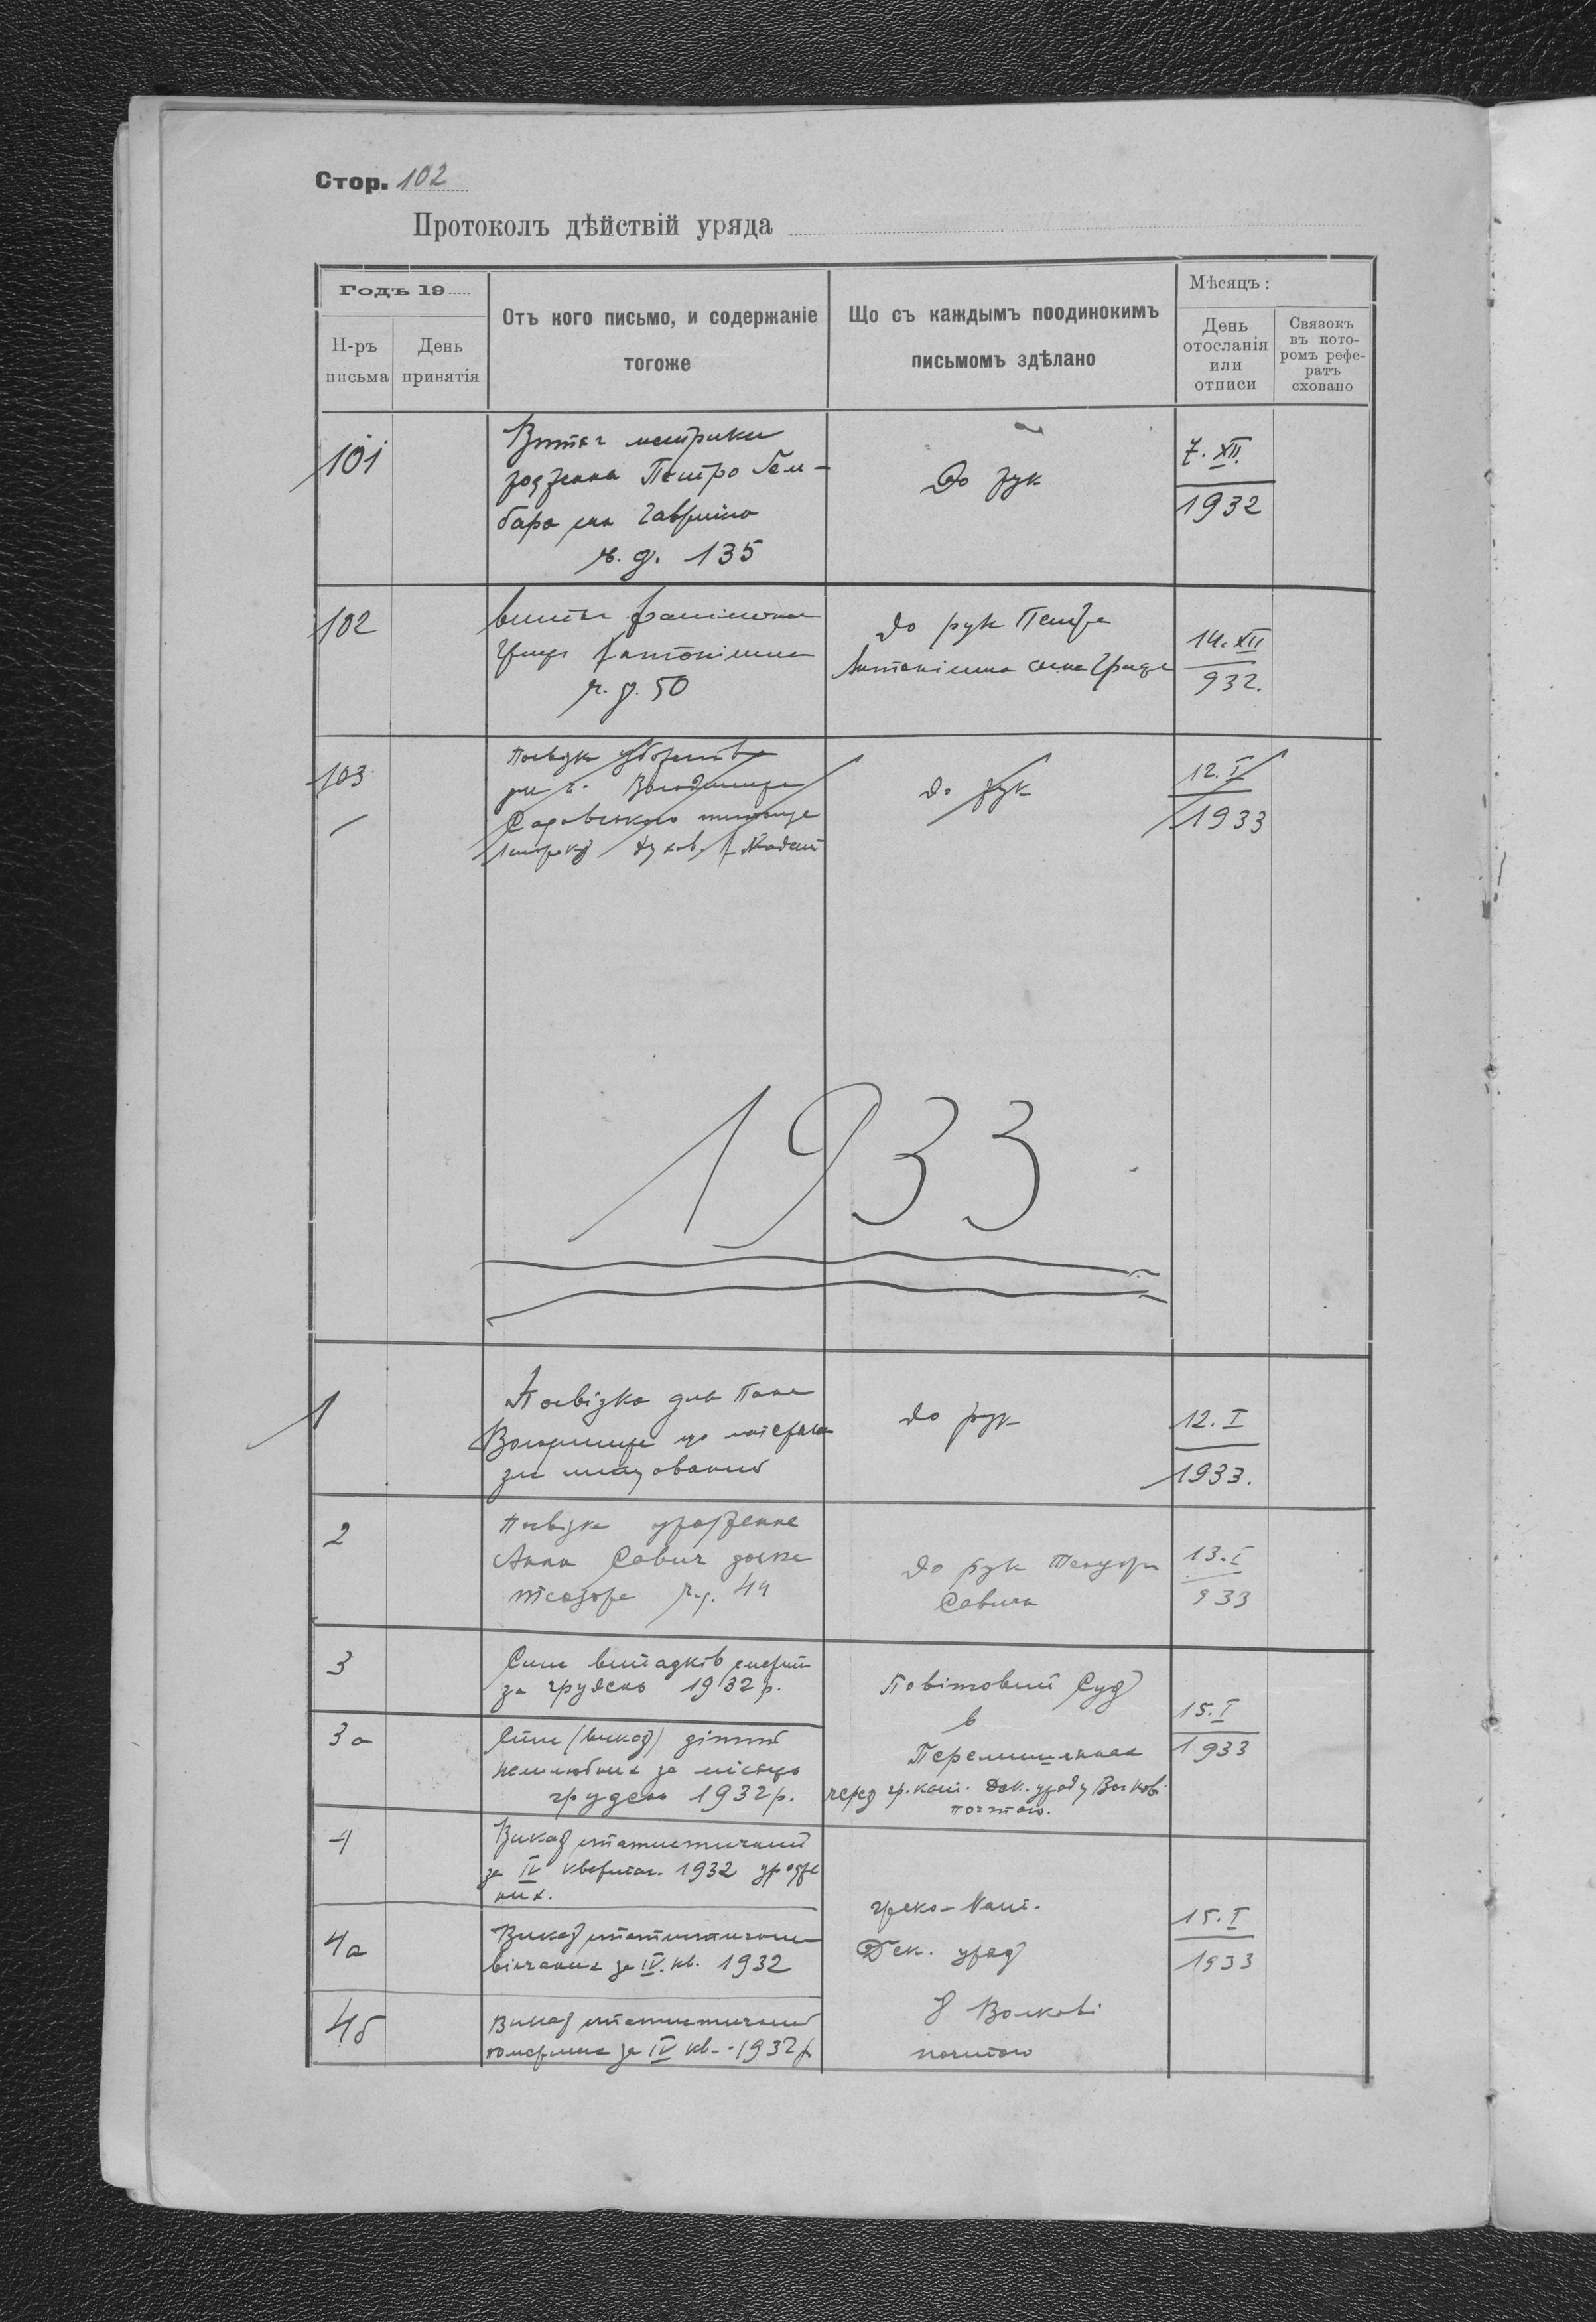 Стор. 102
Протоколъ дѣйствій уряда
Годъ 19
Н-ръ
письма
День
принятія
Отъ кого письмо, и содержаніе
тогоже
Що съ каждымъ поодинокимъ
письмомъ здѣлано
Мѣсяцъ:
День
отосланія
или
отписи
Связокъ
въ кото-
ромъ рефе-
ратъ
сховано
101
Витяг метрики
Петро
ч. д. 135
До рук
7. XII.
1932
102
витяг
ч. д. 50
до рук Петра
сина Гриця
14. XII
932.
103
Посвідка
Володимира
до рук
12. I
1933
1933
1
Посвідка для Пана
Володимира
до рук
12. I
1933.
2
Посвідка уродження
Анна Савич
ч. д. 44
до рук Теодора
Савича
13. I
933
3
Спис випадків смерти
за грудень 1932 р.
Повітовий Суд
в
Перемишлянах
через гр. кат. Дек. уряд у Волкові
почтою.
15. I
1933
3а
Спис (виказ) дітий
за місяць
грудень 1932 р.
4
Виказ статистичний
за IV квартал. 1932 уродже
них.
греко-кат.
Дек. уряд
в Волкові
почтою
15. I
1933
4а
Виказ статистичний
вінчаних за IV. кв. 1932
4б
Виказ статистичний
померших за IV кв. 1932 р